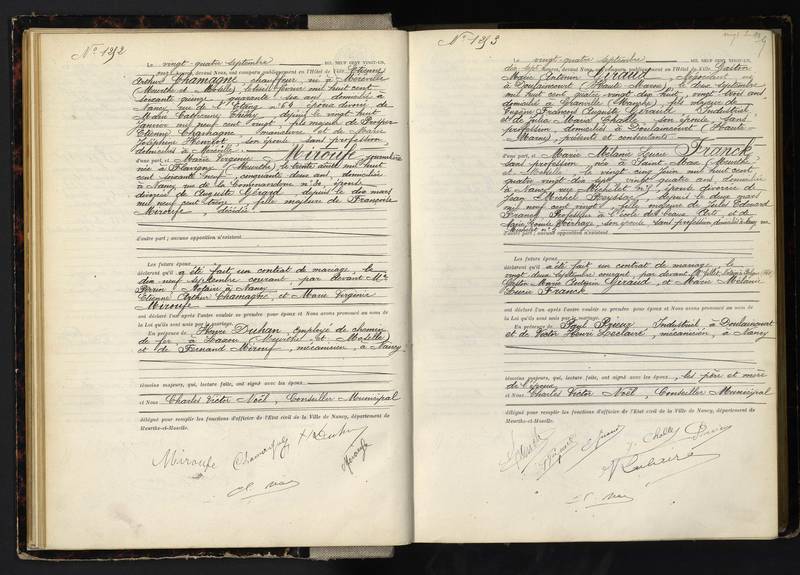 N° 1252
Le vingt-quatre septembre MIL NEUF CENT VINGT-UN,
heures, devant Nous, ont comparu publiquement en l'Hôtel de Ville Etienne
Arthur Chamagne, chauffeur, né à Méréville
(Meurthe et Moselle), le huit février mil huit cent
soixante quinze, quarante six ans, domicilié à
Nancy, rue de St Epvre n° 69, époux divorcé de
Marie Catherine Thiéry, depuis le vingt huit
Janvier mil neuf cent vingt, fils majeur de Prosper
Etienne Chamagne, manœuvre et de Marie
Joséphine Henriot, son épouse, sans profession,
domiciliés à Méréville
d'une part, et Marie Virginie Miroufe, journalière
née à Flavigny (Meurthe), le trente août mil huit
cent soixante neuf, cinquante deux ans, domiciliée
à Nancy, rue de la Commanderie n° 30, épouse
divorcée de Auguste Gérard, depuis le dix mars
mil neuf cent treize, fille majeure de Françoise
Miroufe, décédée
d'autre part; aucune opposition n'existant
Les futurs époux
déclarent qu'il a été fait un contrat de mariage, le
dix neuf septembre courant, par devant Me
Perrin, Notaire à Nancy
Etienne Arthur Chamagne, et Marie Virginie
Miroufe
ont déclaré l'un après l'autre vouloir se prendre pour époux et Nous avons prononcé au nom de
la Loi qu'ils sont unis par le mariage.
En présence de Henri Duhan, employé de chemin
de fer, à Jarville (Meurthe et Moselle)
et de Fernand Miroufe, mécanicien, à Nancy
témoins majeurs, qui, lecture faite, ont signé avec les époux
et Nous Charles Victor Noël, Conseiller Municipal
délégué pour remplir les fonctions d'officier de l'Etat civil de la Ville de Nancy, département de
Meurthe-et-Moselle.
Miroufe Chamagne H. Duhan
Miroufe
N° 1253
Le vingt-quatre septembre MIL NEUF CENT VINGT-UN,
dix sept heures, devant Nous, ont comparu publiquement en l'Hôtel de Ville Gaston
Marie Antonin Giraud, Négociant, né
à Doulaincourt (Haute Marne), le dix septembre
mil huit cent quatre vingt dix huit, vingt trois ans,
domicilié à Granville (Manche), fils majeur de
Eugène François Auguste Giraud, Industriel,
et de Julie Marie Chollet, son épouse, sans
profession, domiciliés à Doulaincourt (Haute
Marne), présents et consentants
d'une part, et Marie Mélanie Lucie Franck
sans profession, née à Saint-Max (Meurthe
et Moselle), le vingt cinq juin mil huit cent
quatre vingt dix sept, vingt quatre ans, domiciliée
à Nancy, rue Michelet n° 5, épouse divorcée de
Jean Michel, depuis le deux mars
mil neuf cent vingt, fille majeure de Jules Edouard
Franck, Professeur à l'école des beaux Arts, et de
son épouse, sans profession, domiciliés à Nancy, rue
Michelet n° 5
d'autre part; aucune opposition n'existant
Les futurs époux
déclarent qu'il a été fait un contrat de mariage, le
vingt deux septembre courant, par devant Me
Gaston Marie Antonin Giraud, et Marie Mélanie
Lucie Franck
ont déclaré l'un après l'autre vouloir se prendre pour époux et Nous avons prononcé au nom de
la Loi qu'ils sont unis par le mariage.
En présence de Paul Prieur, Industriel, à Doulaincourt
et de Victor Henri Leclaire, mécanicien, à Nancy
témoins majeurs, qui, lecture faite, ont signé avec les époux, les père et mère
de l'époux
et Nous Charles Victor Noël, Conseiller Municipal
délégué pour remplir les fonctions d'officier de l'Etat civil de la Ville de Nancy, département de
Meurthe-et-Moselle.